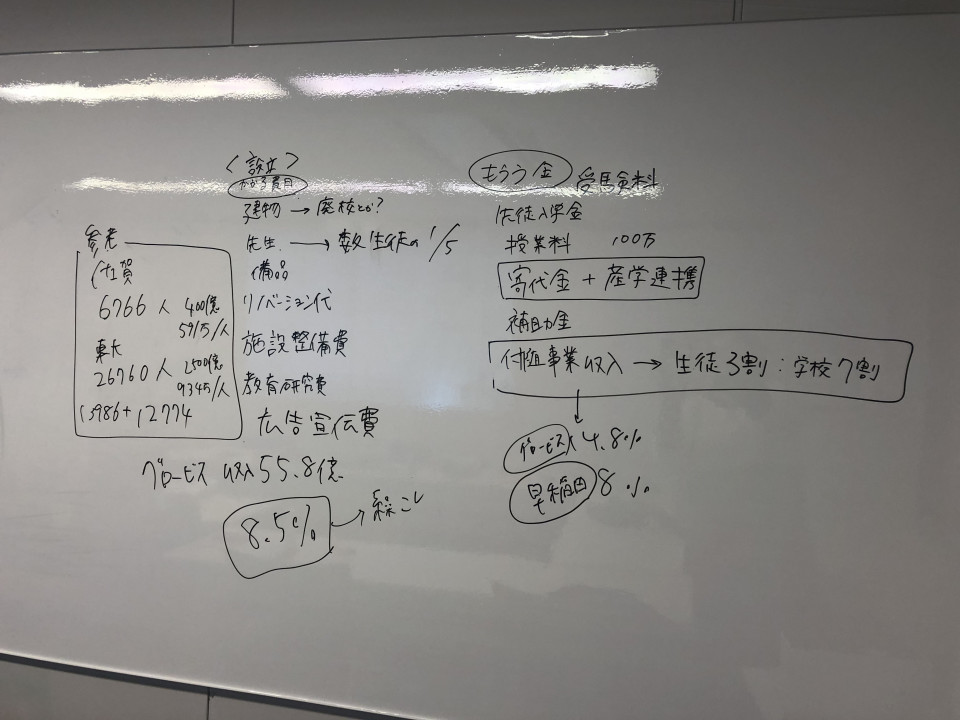 〈設立〉
かかる費用
建物 → 廃校とか?
先生 → 数 生徒の1/5
備品
リノベーション代
施設整備費
教育研究費
広告宣伝費
参考
佐賀
6766人 400億
591万/人
東大
26760人 2500億
934万/人
13986+12774
グロービス 収入55.8億
8.5% → 繰こし
もらう金 受馬食料
生徒入学金
授業料 100万
寄代金 + 産学連携
補助金
付随事業収入 → 生徒3割:学校7割
グロービス 4.8%
早稲田 8%